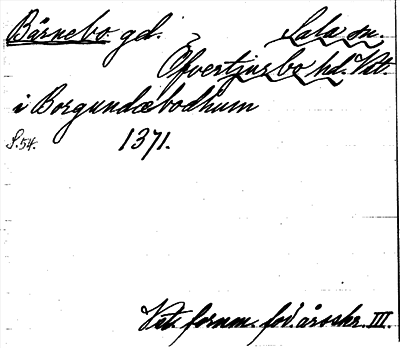 Bärnebo gd. Sala sn.
Öfvertjurbo hd. Vstl.
i Borgundæbodhum
S.54. 1371.
Vstl. fornm. för. årsskr. III.